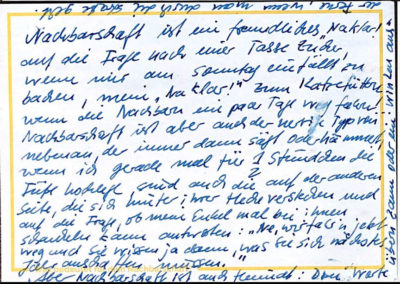 Nachbarschaft ist ein freundliches „Naklar!"
auf die Frage nach einer Tasse Zucker,
wenn mir am Sonntag einfällt zu
backen, mein „Naklar!" zum Katzefüttern
wenn die Nachbarn ein paar Tage wegfahren.
Nachbarschaft ist aber auch der nervige Typ von
nebenan, der immer dann sägt oder hämmert,
wenn ich gerade mal für 1/2 Stündchen die
Füße hochlege, sind auch die auf der anderen
Seite, die sich hinter ihrer Hecke verstecken und
auf die Frage, ob mein Enkel mal bei ihnen
schaukeln kann antworten: „Nee, wir fahrn jetzt
weg und Sie wissen ja dann, was Sie sich nächstes
Jahr anschaffen müssen."
Aber Nachbarschaft ist auch Freund: Drei Worte
über'n Zaun oder ein Winken aus
der Fern, wenn man durch die Straße geht.